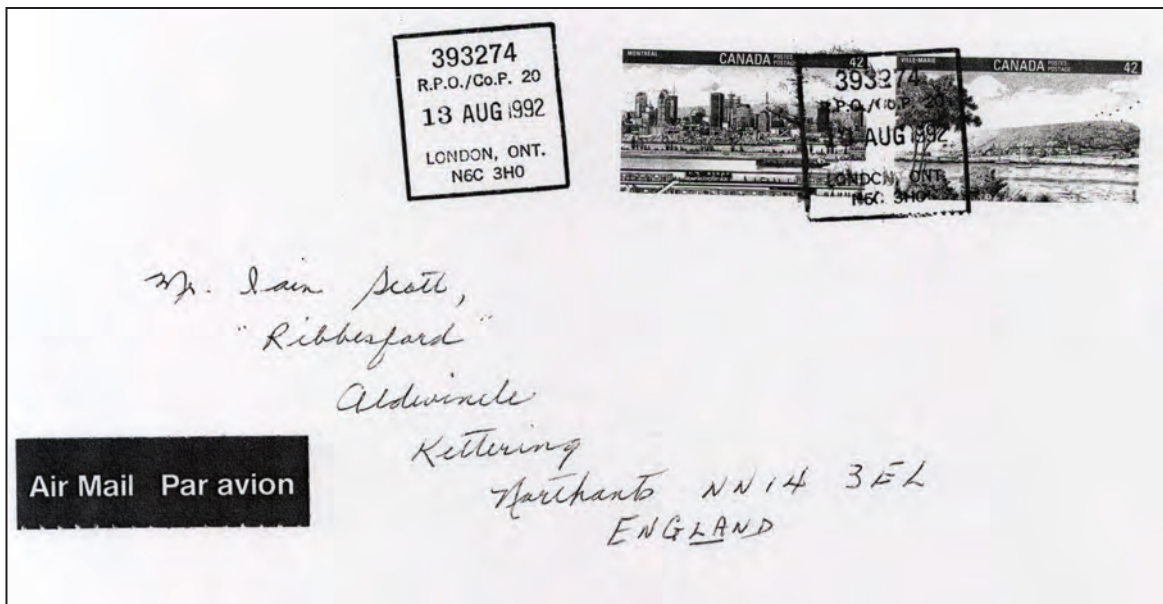 393274
R.P.O./Co.P. 20
13 AUG 1992
LONDON, ONT.
N6C 3H0
MONTRÉAL
CANADA POSTES POSTAGE 42
VILLE-MARIE
CANADA POSTES POSTAGE 42
393274
R.P.O./Co.P. 20
AUG 1992
LONDON, ONT.
N6C 3H0
Mr. Iain Scott,
"Ribbesford"
Aldwincle
Kettering
Northants NN14 3EL
ENGLAND
Air Mail Par avion